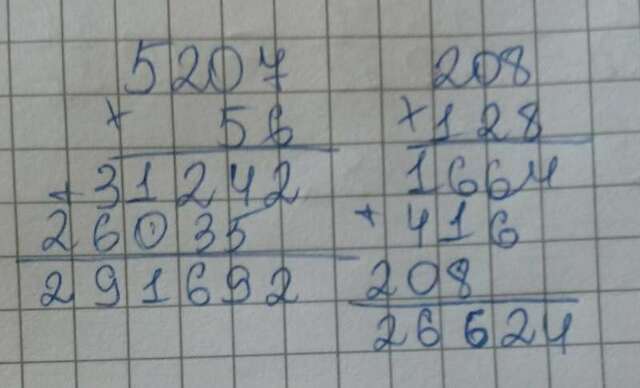 5207
× 56
+ 31242
26035
291692
208
× 128
1664
+ 416
208
26624